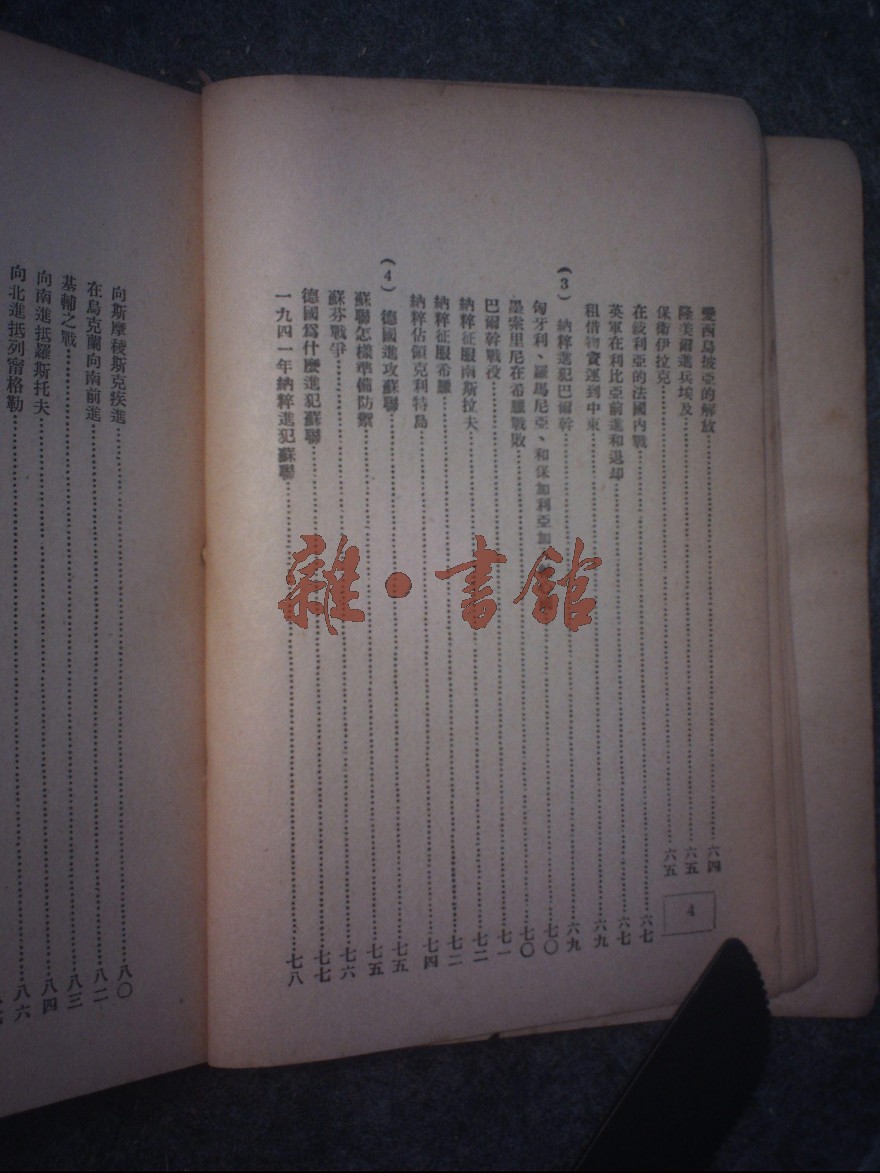 愛西烏坡亞的解放……六四
隆美爾進兵埃及……六五
保衛伊拉克……六五
在敍利亞的法國內戰……六七
英軍在利比亞前進和退却……六七
租借物資運到中東……六九
(3) 納粹進犯巴爾幹……六九
匈牙利、羅馬尼亞、和保加利亞加……七〇
墨索里尼在希臘戰敗……七〇
巴爾幹戰役……七一
納粹征服南斯拉夫……七二
納粹征服希臘……七二
納粹佔領克利特島……七四
(4) 德國進攻蘇聯……七五
蘇聯怎樣準備防禦……七五
蘇芬戰爭……七六
德國爲什麼進犯蘇聯……七七
一九四一年納粹進犯蘇聯……七八
4
向斯摩稜斯克疾進……八〇
在烏克蘭向南前進……八二
基輔之戰……八三
向南進抵羅斯托夫……八四
向北進抵列甯格勒……八六
雜·書館